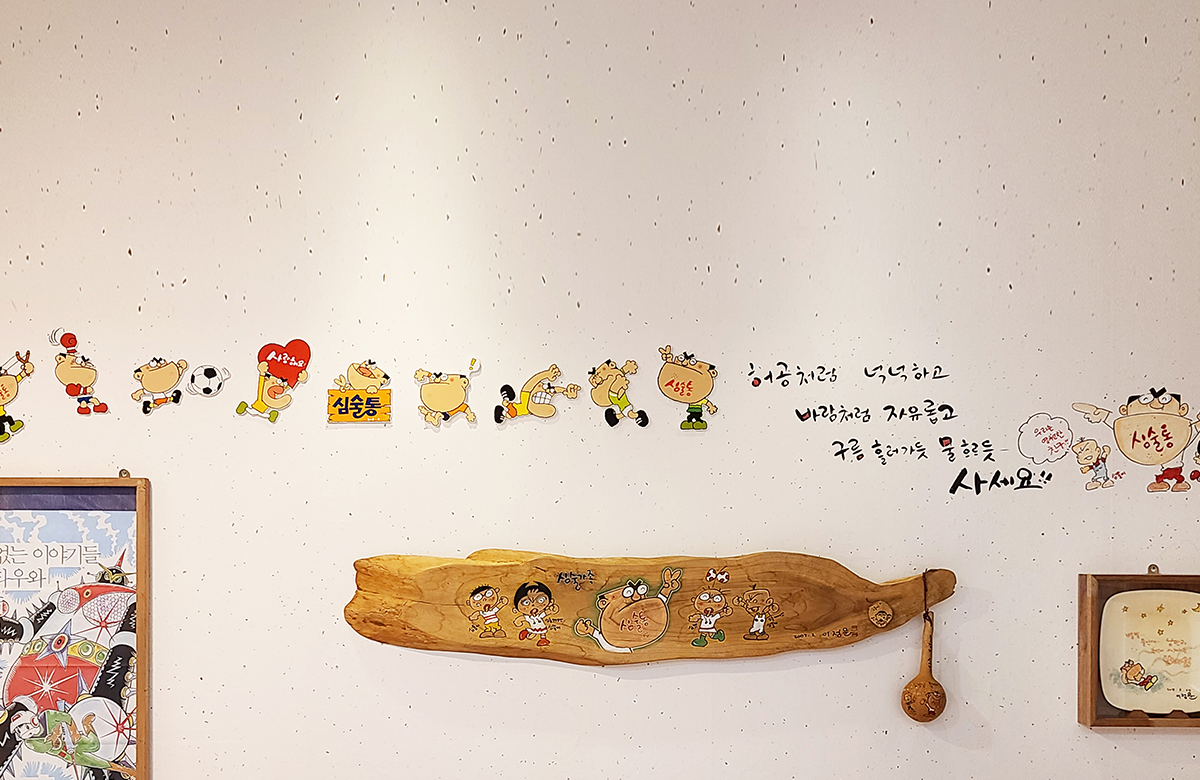 사랑해요
심술통
심술통
허공처럼 넉넉하고
바람처럼 자유롭고
구름 흘러가듯 물 흐르듯
사세요!!
우리는
영원한
친구!!
심술통
없는 이야기들
타우와
심술가족
심술통
2007. 2. 이정문